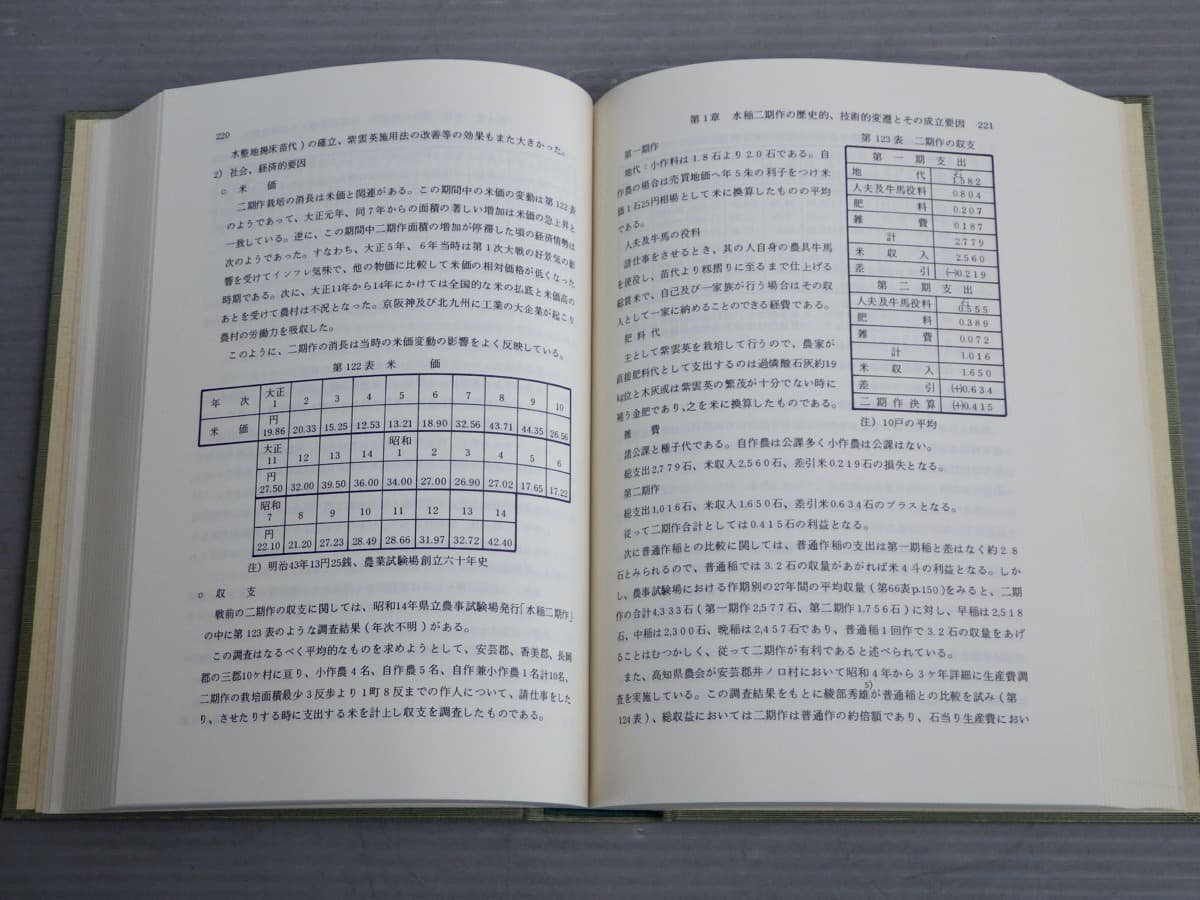 220
水整地揚床苗代)の確立、紫雲英施用法の改善等の効果もまた大きかった。
2) 社会、経済的要因
○ 米 価
二期作栽培の消長は米価と関連がある。この期間中の米価の変動は第122表
のようであって、大正元年、同7年からの面積の著しい増加は米価の急上昇と
一致している。逆に、この期間中二期作面積の増加が停滞した頃の経済情勢は
次のようであった。すなわち、大正5年、6年当時は第1次大戦の好景気の影
響を受けてインフレ気味で、他の物価に比較して米価の相対価格が低くなった
時期である。次に、大正11年から14年にかけては全国的な米の払底と米価高の
あとを受けて農村は不況となった。京阪神及び北九州に工業の大企業が起こり
農村の労働力を吸収した。
このように、二期作の消長は当時の米価変動の影響をよく反映している。
第122表 米 価
年 次 大正1 2 3 4 5 6 7 8 9 10
米 価 円19.86 20.33 15.25 12.53 13.21 18.90 32.56 43.71 44.35 26.56
大正11 12 13 14 昭和1 2 3 4 5 6
円27.50 32.00 39.50 36.00 34.00 27.00 26.90 27.02 17.65 17.22
昭和7 8 9 10 11 12 13 14
円22.10 21.20 27.23 28.49 28.66 31.97 32.72 42.40
注) 明治43年13円25銭、農業試験場創立六十年史
○ 収 支
戦前の二期作の収支に関しては、昭和14年県立農事試験場発行「水稲二期作」
の中に第123表のような調査結果(年次不明)がある。
この調査はなるべく平均的なものを求めようとして、安芸郡、香美郡、長岡
郡の三郡10ヶ村に亘り、小作農4名、自作農5名、自作兼小作農1名計10名、
二期作の栽培面積最少3反歩より1町8反までの作人について、請仕事をした
り、させたりする時に支出する米を計上し収支を調査したものである。
第1章 水稲二期作の歴史的、技術的変遷とその成立要因 221
第一期作
地代:小作料は1.8石より2.0石である。自
作農の場合は売買地価へ年5朱の利子をつけ米
価1石25円相場として米に換算したものの平均
である。
人夫及牛馬の役料
請仕事をさせるとき、其の人自身の農具牛馬
を使役し、苗代より籾摺りに至るまで仕上げる
総賃米で、自己及び一家族が行う場合はその収
入として一家に納めることのできる経費である。
肥料代
主として紫雲英を栽培して行うので、農家が
直接肥料代として支出するのは過燐酸石灰約19
は位と木灰或は紫雲英の繁茂が十分でない時に
補う金肥であり、之を米に換算したものである。
雑 費
諸公課と種子代である。自作農は公課多く小作農は公課はない。
総支出2,779石、米収入2,560石、差引米0.219石の損失となる。
第二期作
総支出1,016石、米収入1,650石、差引米0.634石のプラスとなる。
従って二期作合計としては0.415石の利益となる。
次に普通作稲との比較に関しては、普通作稲の支出は第一期稲と差はなく約2.8
石とみられるので、普通稲では3.2石の収量があがれば米4斗の利益となる。しか
し、農事試験場における作期別の27年間の平均収量(第66表p.150)をみると、二期
の合計4,333石(第一期作2,577石、第二期作1,756石)に対し、早稲は2,518
石、中稲は2,300石、晩稲は2,457石であり、普通稲1回作で3.2石の収量をあげ
ることはむつかしく、従って二期作が有利であると述べられている。
また、高知県農会が安芸郡井ノ口村において昭和4年から3ヶ年詳細に生産費調
査を実施している。この調査結果をもとに綾部秀雄5)が普通稲との比較を試み(第
124表)、総収益においては二期作は普通作の約倍額であり、石当り生産費におい
第123表 二期作の収支
第一期支出
地 代 石1.582
人夫及牛馬役料 0.804
肥 料 0.207
雑 費 0.187
計 2.779
米収入 2.560
差 引 (−)0.219
第二期支出
人夫及牛馬役料 石0.555
肥 料 0.389
雑 費 0.072
計 1.016
米収入 1.650
差 引 (+)0.634
二期作決算 (+)0.415
注) 10戸の平均